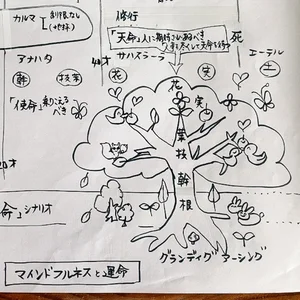 カルマ
修行
「天命」人に期待
人事を尽くして天命を待つ
死
アナハタ
40才
サハスラーラ
エーテル
幹
枝葉
花
実
土
「使命」
べき
花
実
葉
枝
幹
根
20才
命」シナリオ
グランディング
アーシング
マインドフルネスと運命